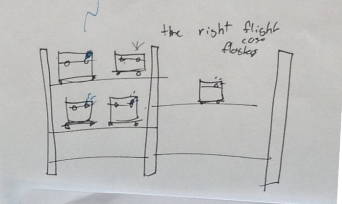 the right flight
case
flashes